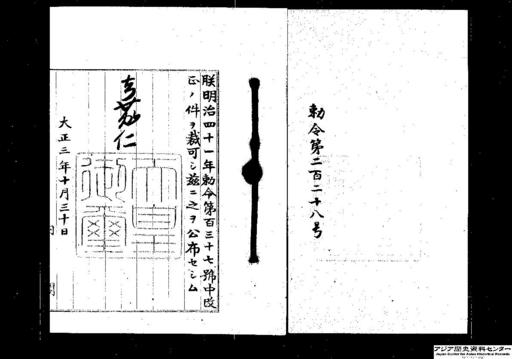 勅令第二百二十八号
朕明治四十一年勅令第百三十七號中改
正ノ件ヲ裁可シ茲ニ之ヲ公布セシム
嘉仁
天皇御璽
大正三年十月三十日
アジア歴史資料センター
Japan Center for Asian Historical Records